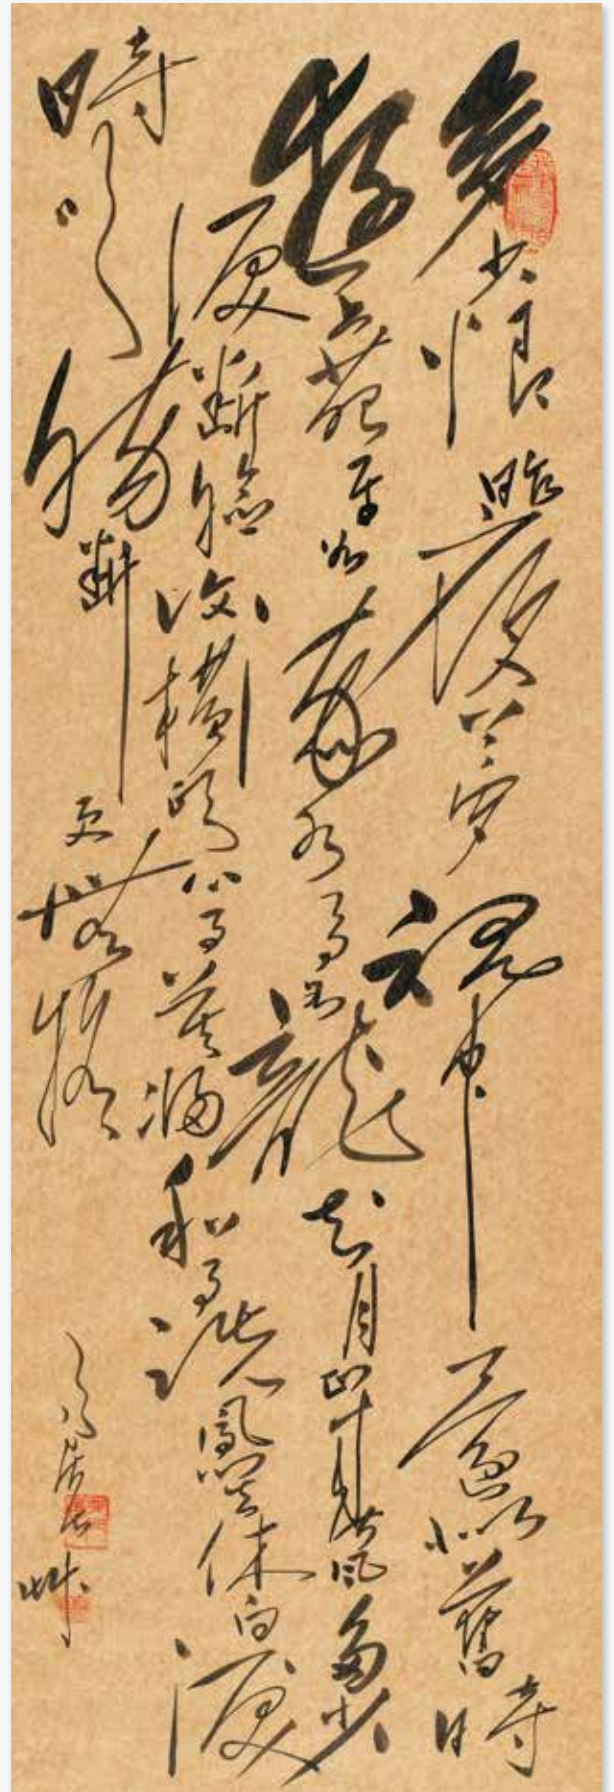 多少恨昨夜夢魂中還似舊時
遊上苑車如流水馬如龍花月正春風多少
淚斷臉復橫頤心事莫將和淚說鳳笙休向淚
時吹腸斷更無疑